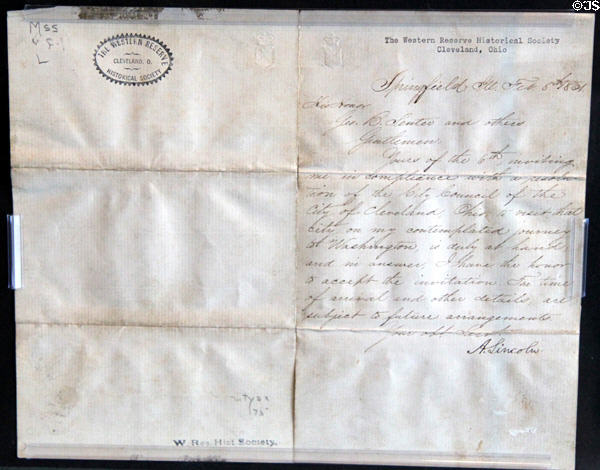 © JS
Mss
L
THE WESTERN RESERVE
CLEVELAND, O.
HISTORICAL SOCIETY
The Western Reserve Historical Society
Cleveland, Ohio
Springfield Ill. Feb 8th 1861
His honor
Geo. B. Senter and others
Gentlemen
Yours of the 6th inviting
me in compliance with a resolu-
tion of the City Council of the
City of Cleveland, Ohio, to visit that
city on my contemplated journey
to Washington is duly at hand
and in answer I have the honor
to accept the invitation. The time
of arrival and other details, are
subject to future arrangements.
Your obt Servt
A. Lincoln
W. Res. Hist Society.